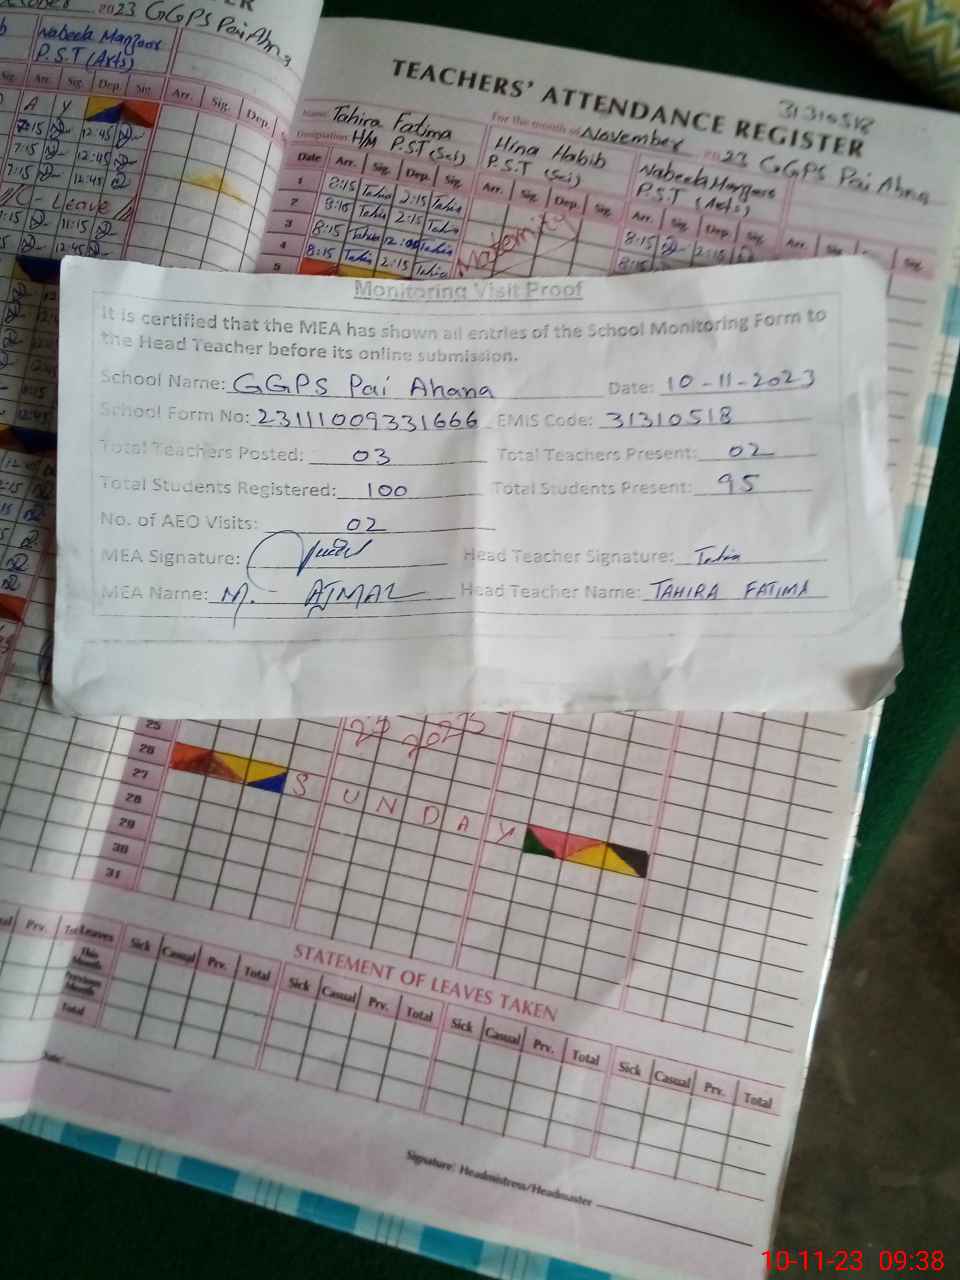 2023 GGPS Pai Ahna
Nabeela Manzoor
P.S.T (Arts)
Sig. Arr. Sig. Dep. Sig. Arr. Sig. Dep.
A Y
7:15 12:45
7:15 12:45
7:15 12:45
C - Leave
11:15
12:45
TEACHERS' ATTENDANCE REGISTER
31310518
Name Tahira Fatima For the month of November 2023 GGPS Pai Ahna
Designation: H/M P.ST (Sci) Hina Habib Nabeela Manzoor
P.S.T (Sci) P.S.T (Arts)
Date Arr. Sig. Dep. Sig. Arr. Sig. Dep. Sig. Arr. Sig. Dep. Sig. Arr. Sig. Sig.
1 8:15 Tahira 2:15 Tahira
2 8:15 Tahira 2:15 Tahira
3 8:15 Tahira 12:00 Tahira Maternity 8:15 12:15
4 8:15 Tahira 2:15 Tahira 8:15
5
Monitoring Visit Proof
It is certified that the MEA has shown all entries of the School Monitoring Form to
the Head Teacher before its online submission.
School Name: GGPS Pai Ahana Date: 10-11-2023
School Form No: 23111009331666 EMIS Code: 31310518
Total Teachers Posted: 03 Total Teachers Present: 02
Total Students Registered: 100 Total Students Present: 95
No. of AEO Visits: 02
MEA Signature: Head Teacher Signature: Tahira
MEA Name: M. AJMAL Head Teacher Name: TAHIRA FATIMA
25 2023
26 SUNDAY
27
28
29
30
31
STATEMENT OF LEAVES TAKEN
Prv. Total
Leaves Sick Casual Prv. Total Sick Casual Prv. Total Sick Casual Prv. Total Sick Casual Prv. Total
This Month
Previous Month
Total
Date
Signature: Headmistress/Headmaster
10-11-23 09:38